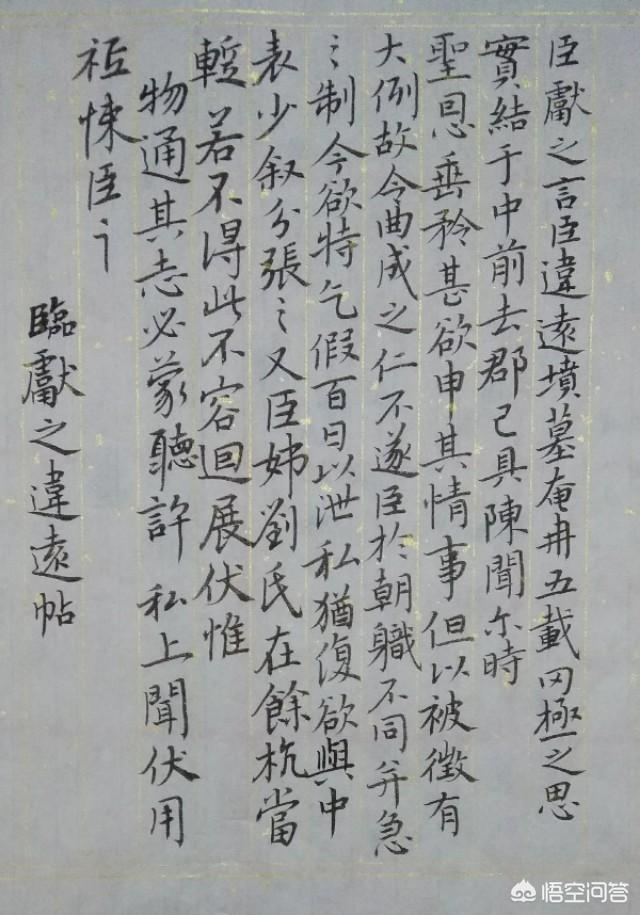 臣獻之言臣違遠墳墓奄冉五載罔極之思
實結于中前去郡已具陳聞尒時
聖恩垂矜甚欲申其情事但以被徵有
大例故今曲成之仁不遂臣於朝職不同并急
之制今欲特乞假百日以泄私猶復欲與中
表少叙分張之又臣姊劉氏在餘杭當
蹔若不得此不容迴展伏惟
物通其志必蒙聽許私上聞伏用
悚臣之
臨獻之違遠帖
悟空问答